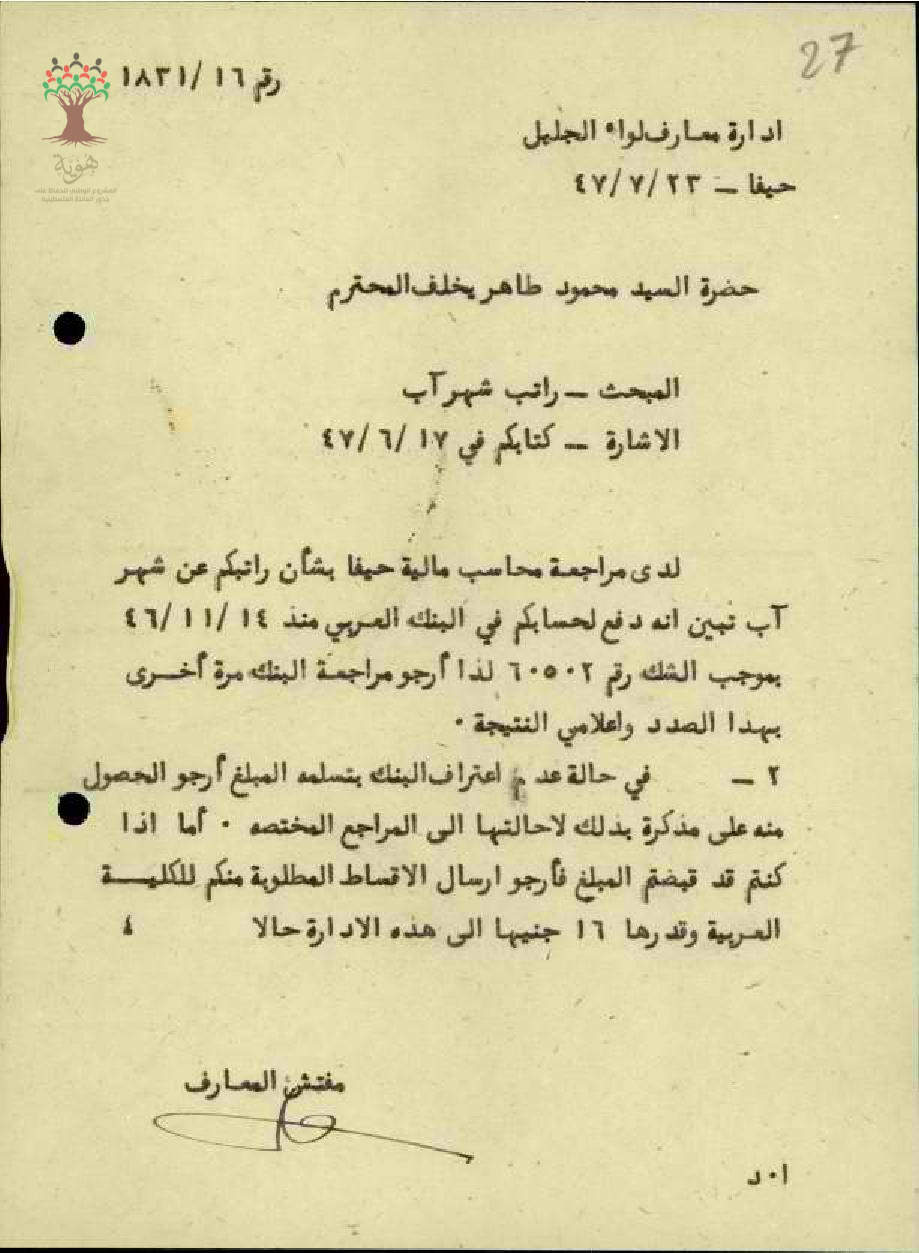 27
رقم ١٦ /١٨٣١
هوية
المشروع الوطني للحفاظ على
جذور العائلة الفلسطينية
ادارة معارف لواء الجليل
حيفا – ٢٣ /٤٧/٧
حضرة السيد محمود طاهر يخلف المحترم
المبحث – راتب شهر آب
الاشارة – كتابكم في ١٧ /٤٧/٦
لدى مراجعة محاسب مالية حيفا بشأن راتبكم عن شهر
آب تبين انه دفع لحسابكم في البنك العربي منذ ١٤ /٤٦/١١
بموجب الشك رقم ٦٠٥٠٢ لذا أرجو مراجعة البنك مرة أخرى
بهذا الصدد واعلامي النتيجة ٠
٢ – في حالة عدم اعتراف البنك بتسلمه المبلغ أرجو الحصول
منه على مذكرة بذلك لاحالتها الى المراجع المختصه ٠ أما اذا
كنتم قد قبضتم المبلغ فأرجو ارسال الاقساط المطلوبة منكم للكليـــة
العربية وقدرها ١٦ جنيها الى هذه الادارة حالا ٤
مفتش المعارف
ا٠د